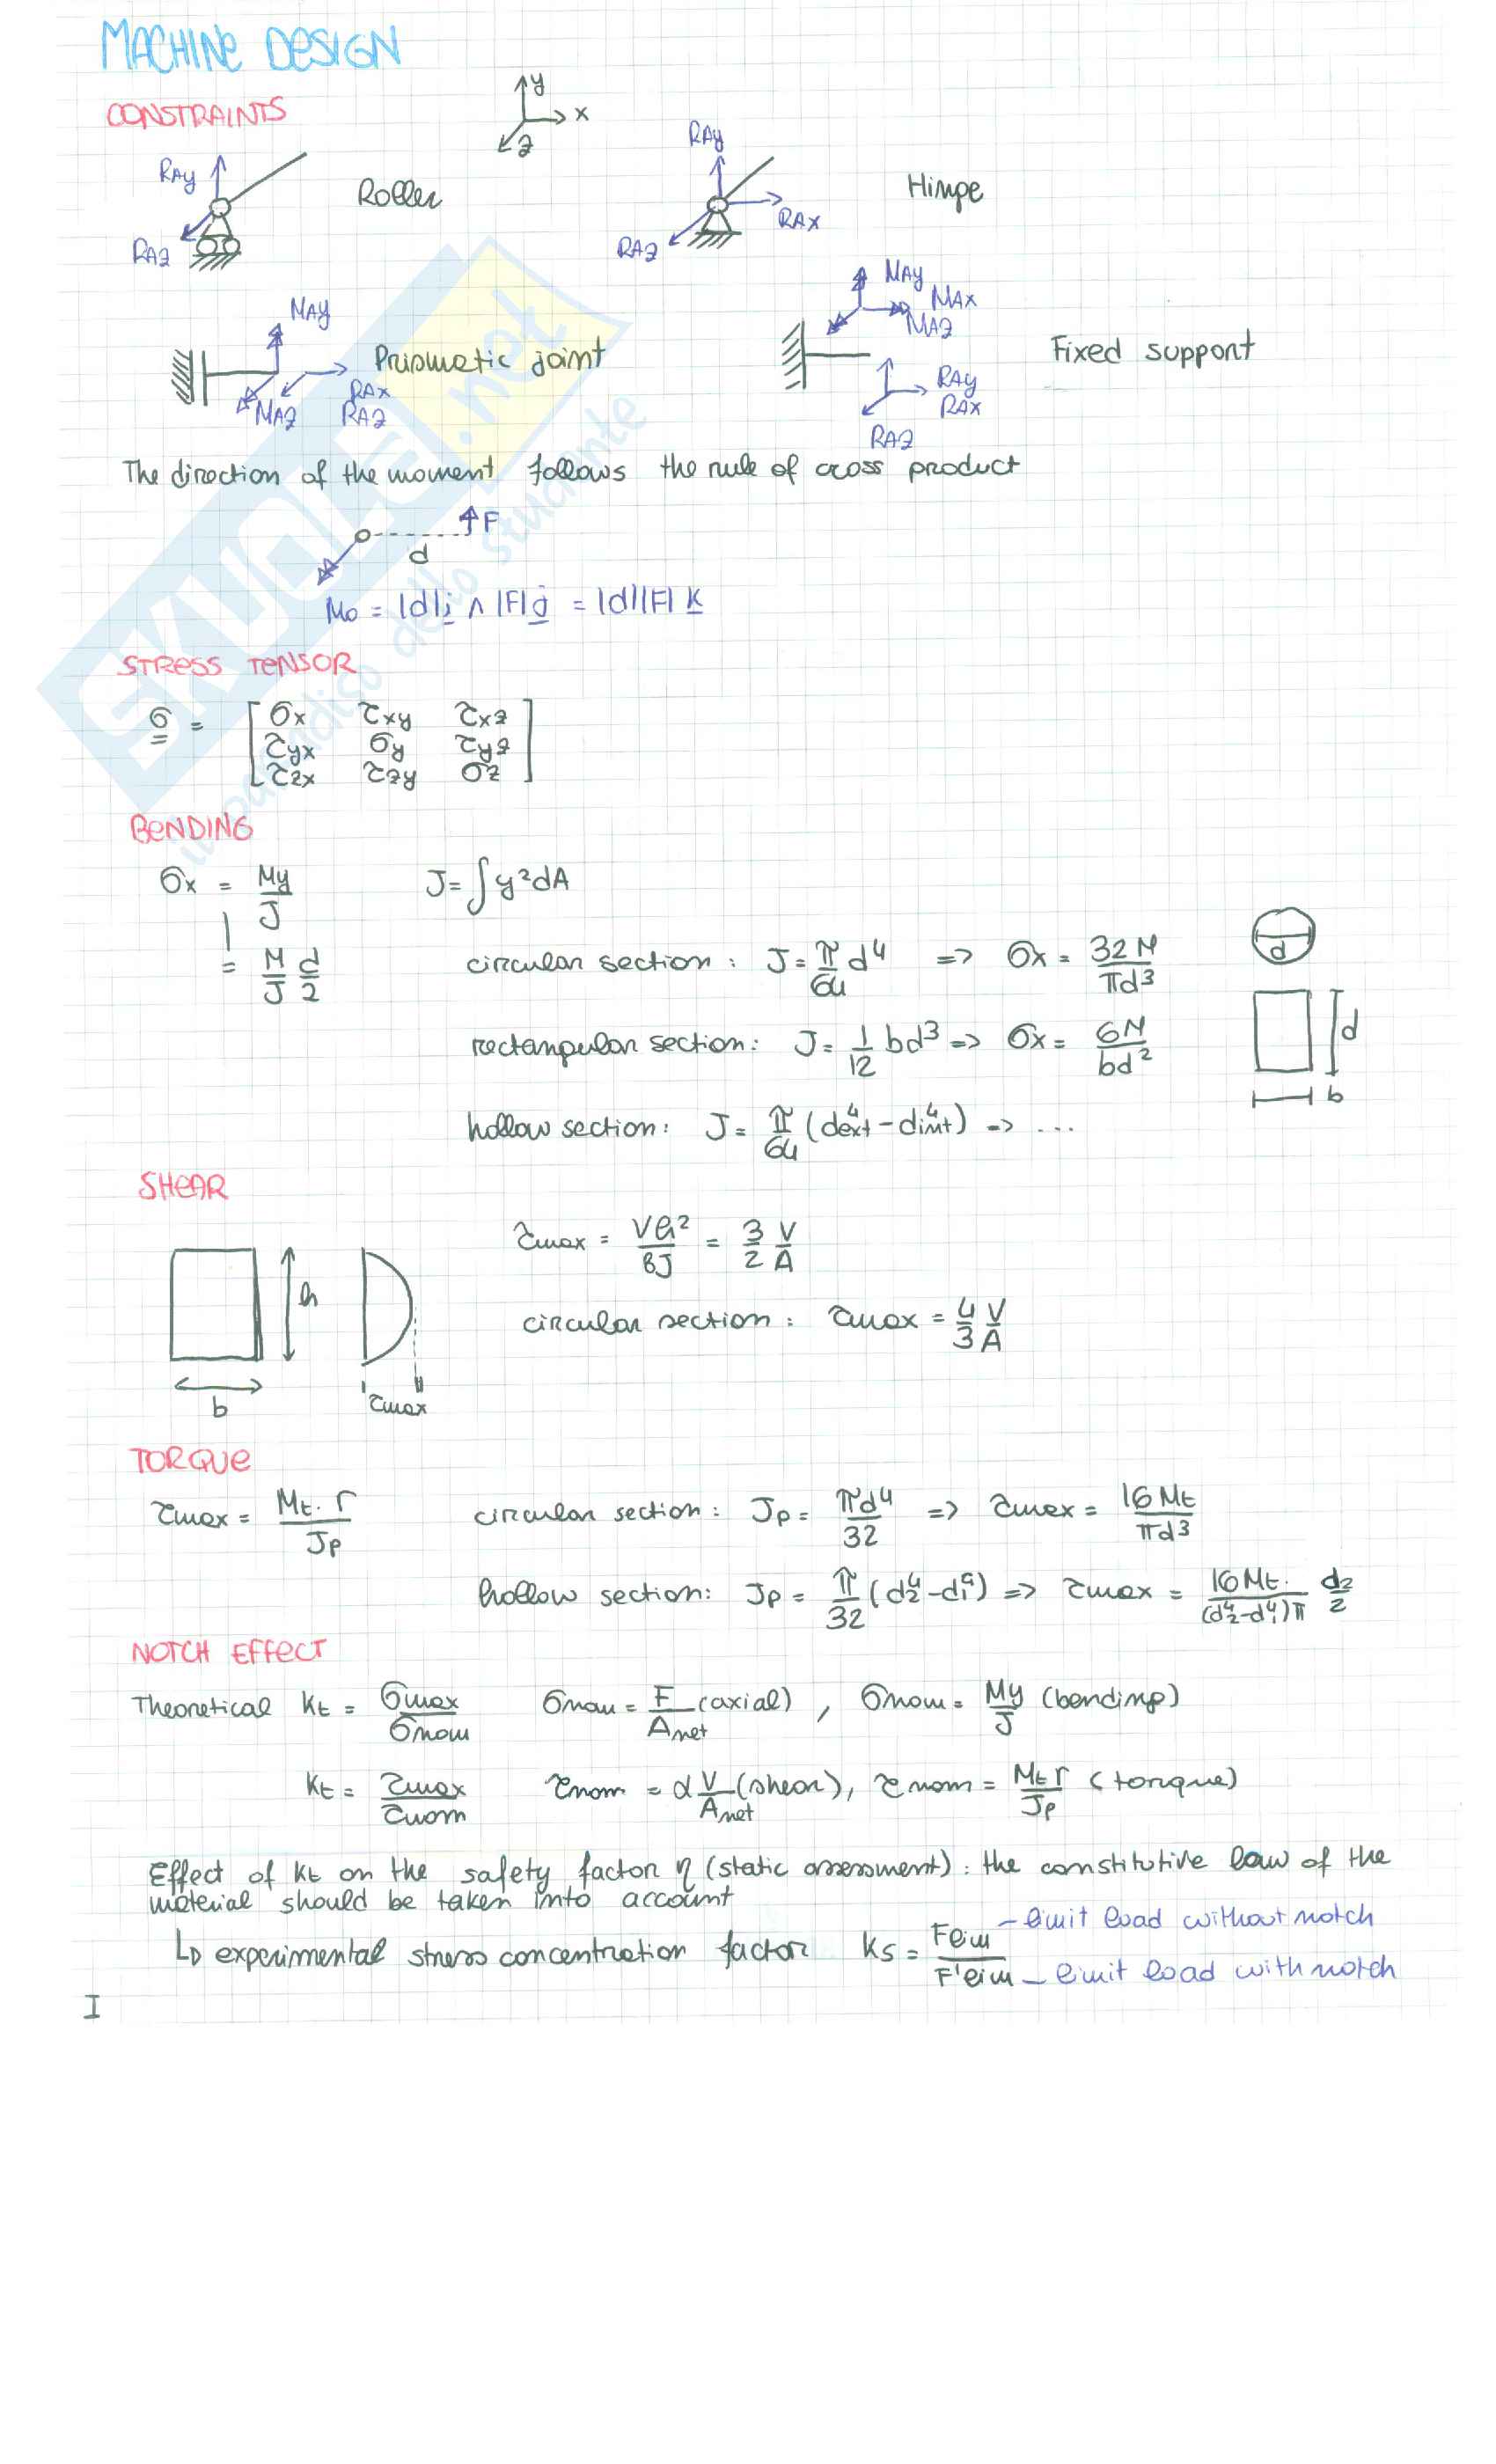 MACHINE DESIGN
CONSTRAINTS
y
x
z
RAy
RAz
Roller
RAy
RAx
RAz
Hinge
MAy
MAz
RAx
RAz
Prismatic joint
MAy
MAx
MAz
RAy
RAx
RAz
Fixed support
The direction of the moment follows the rule of cross product
F
d
Mo = |d|i ∧ |F|j = |d||F| k
STRESS TENSOR
σ = [ σx τxy τxz
τyx σy τyz
τzx τzy σz ]
BENDING
σx = My/J J = ∫y²dA
= M/J d/2 circular section: J = π/64 d⁴ => σx = 32M/πd³
d
rectangular section: J = 1/12 bd³ => σx = 6M/bd²
d
b
hollow section: J = π/64 (d⁴ext - d⁴int) => ...
SHEAR
h
b
τmax
τmax = /BJ = 3/2 V/A
circular section: τmax = 4/3 V/A
TORQUE
τmax = Mt · r/Jp circular section: Jp = πd⁴/32 => τmax = 16Mt/πd³
hollow section: Jp = π/32 (d₂⁴-d₁⁴) => τmax = 16Mt·/(d₂⁴-d₁⁴)π d₂/2
NOTCH EFFECT
Theoretical Kt = σmax/σnom σnom = F/Anet (axial), σnom = My/J (bending)
Kt = τmax/τnom τnom = α V/Anet (shear), τnom = Mt r/Jp (torque)
Effect of Kt on the safety factor η (static assessment): the constitutive law of the
material should be taken into account
↳ experimental stress concentration factor Ks = Flim/F'lim
- limit load without notch
- limit load with notch
I
SKUOLA.net
il paradiso dello studente